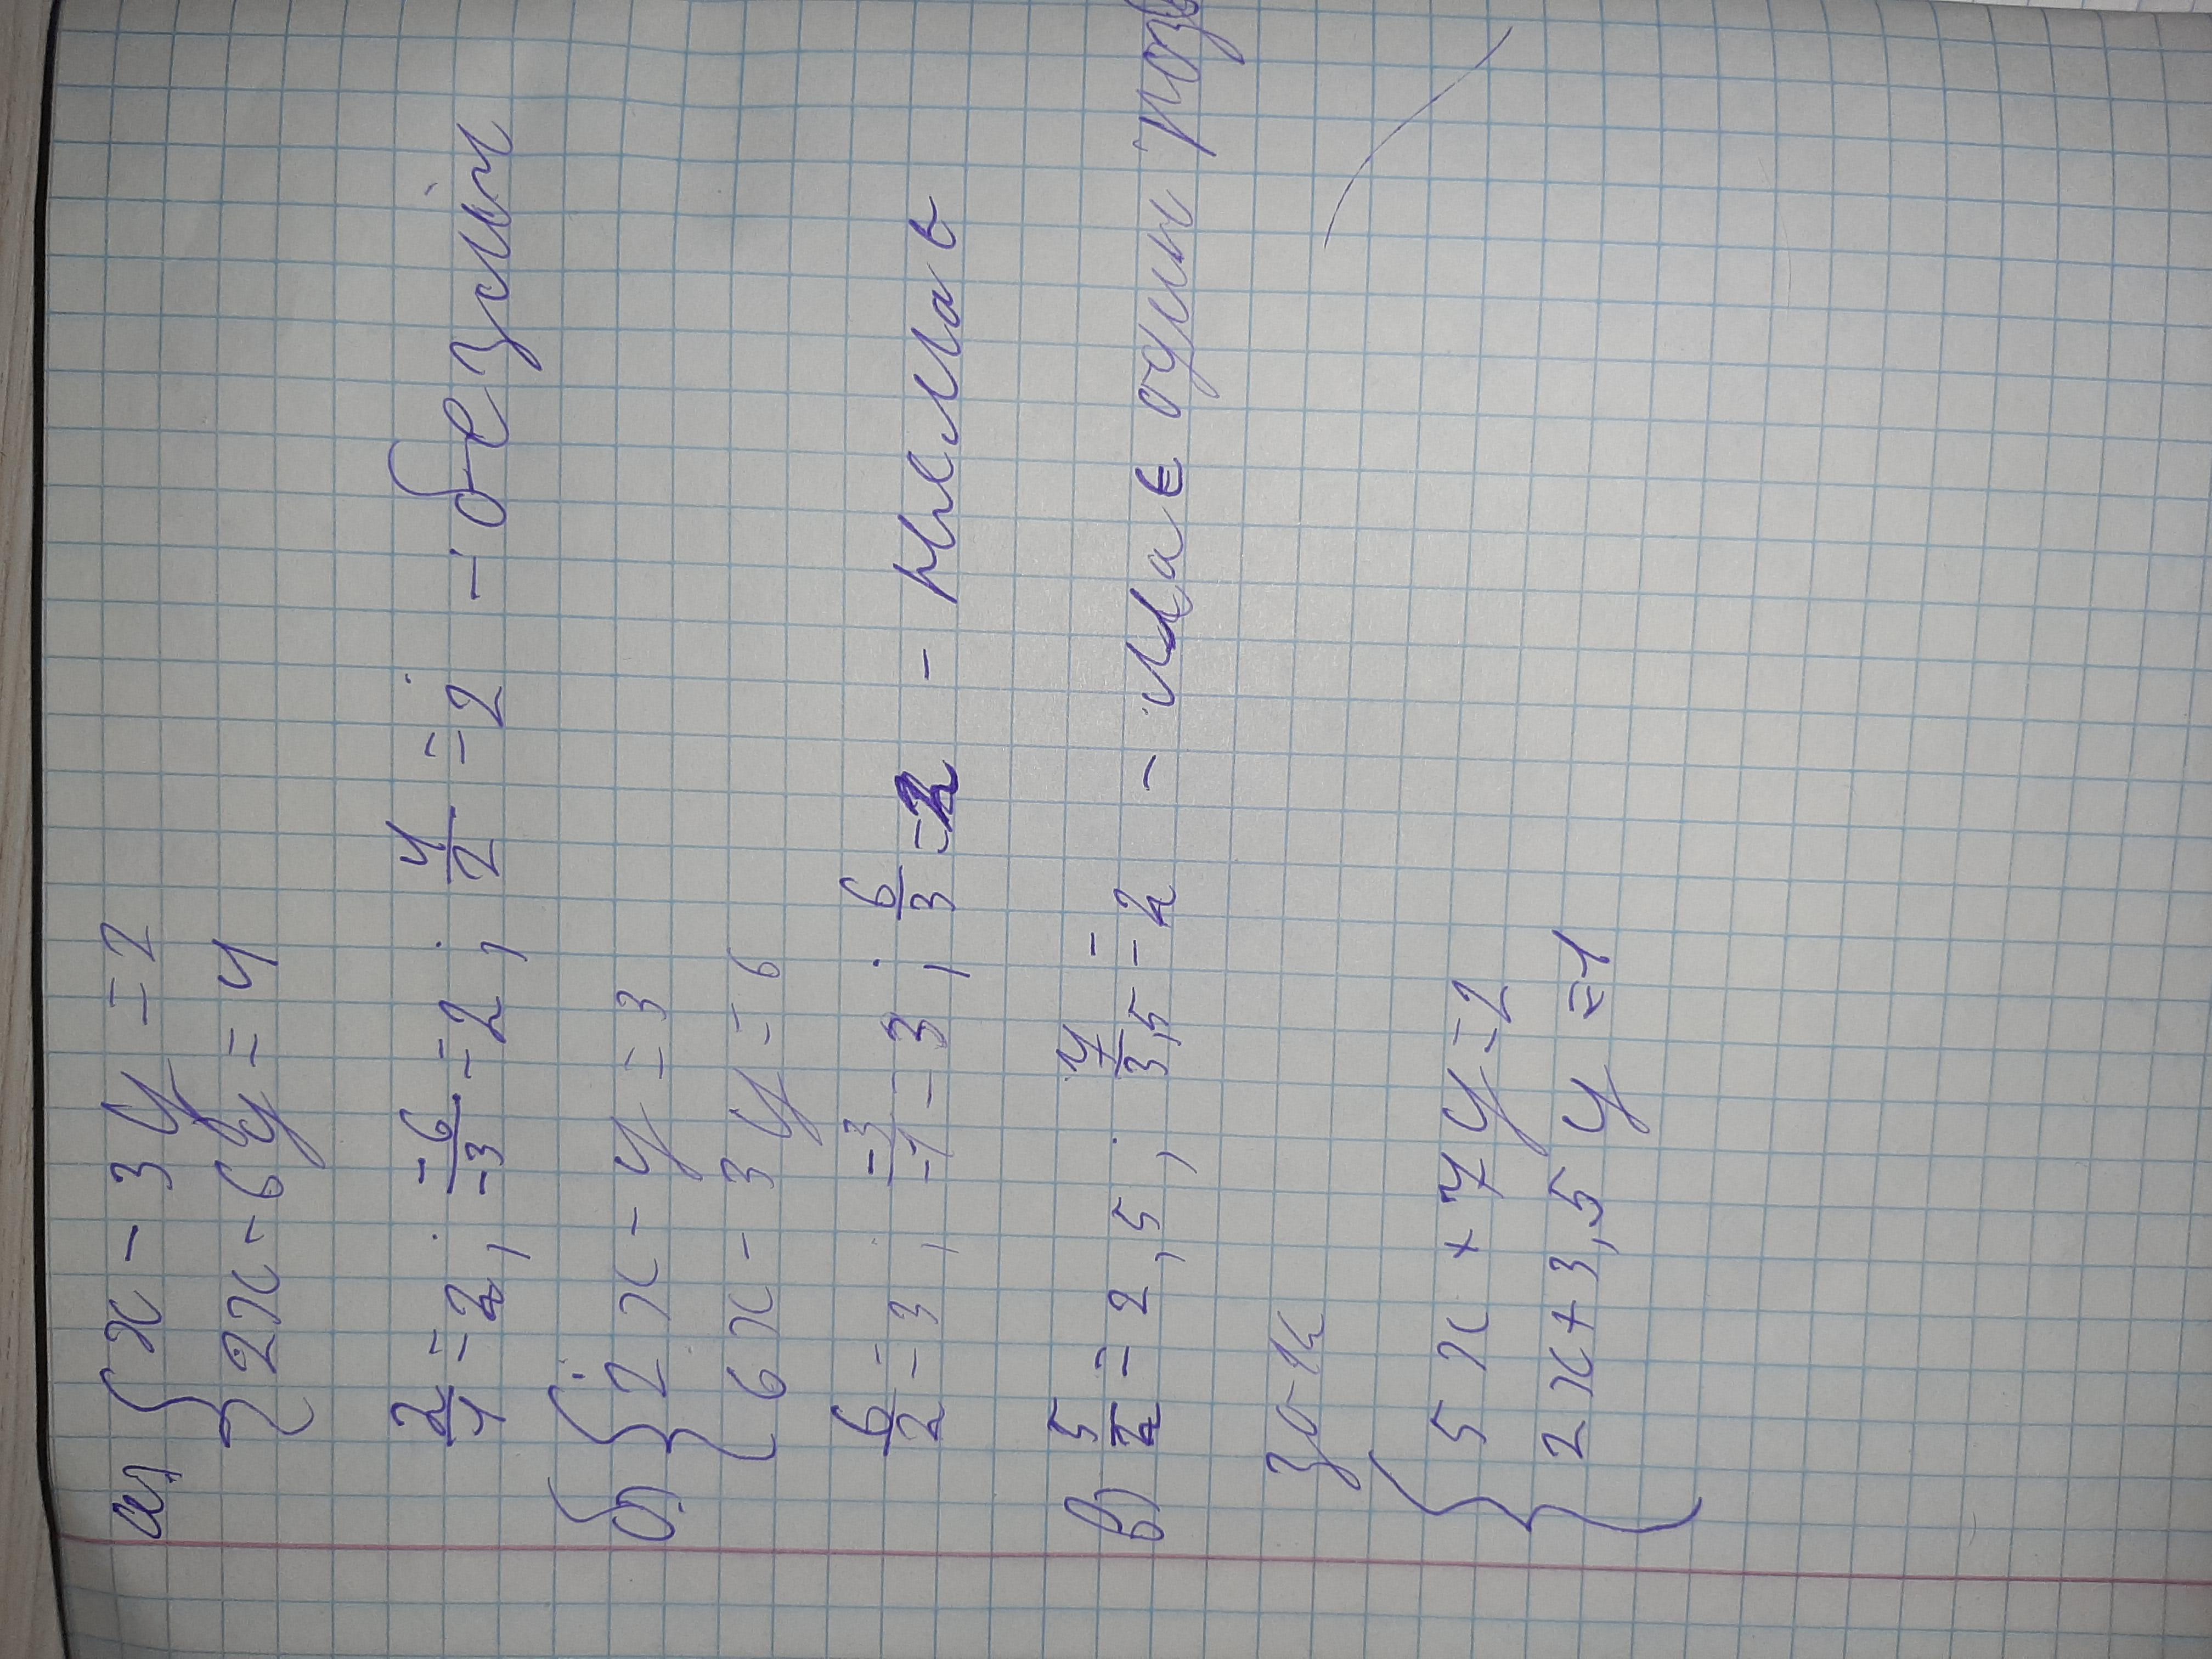 а) { x - 3y = 2
{ 2x - 6y = 4
2/1 = 2; -6/-3 = 2; 4/2 = 2 - безліч
б) { 2x - y = 3
{ 6x - 3y = 6
6/2 = 3; -3/-1 = 3; 6/3 = 2 - немає
в) 5/2 = 2,5; 7/3,5 = 2 - має один розв
{ 5x + 7y = 2
{ 2x + 3,5y = 1